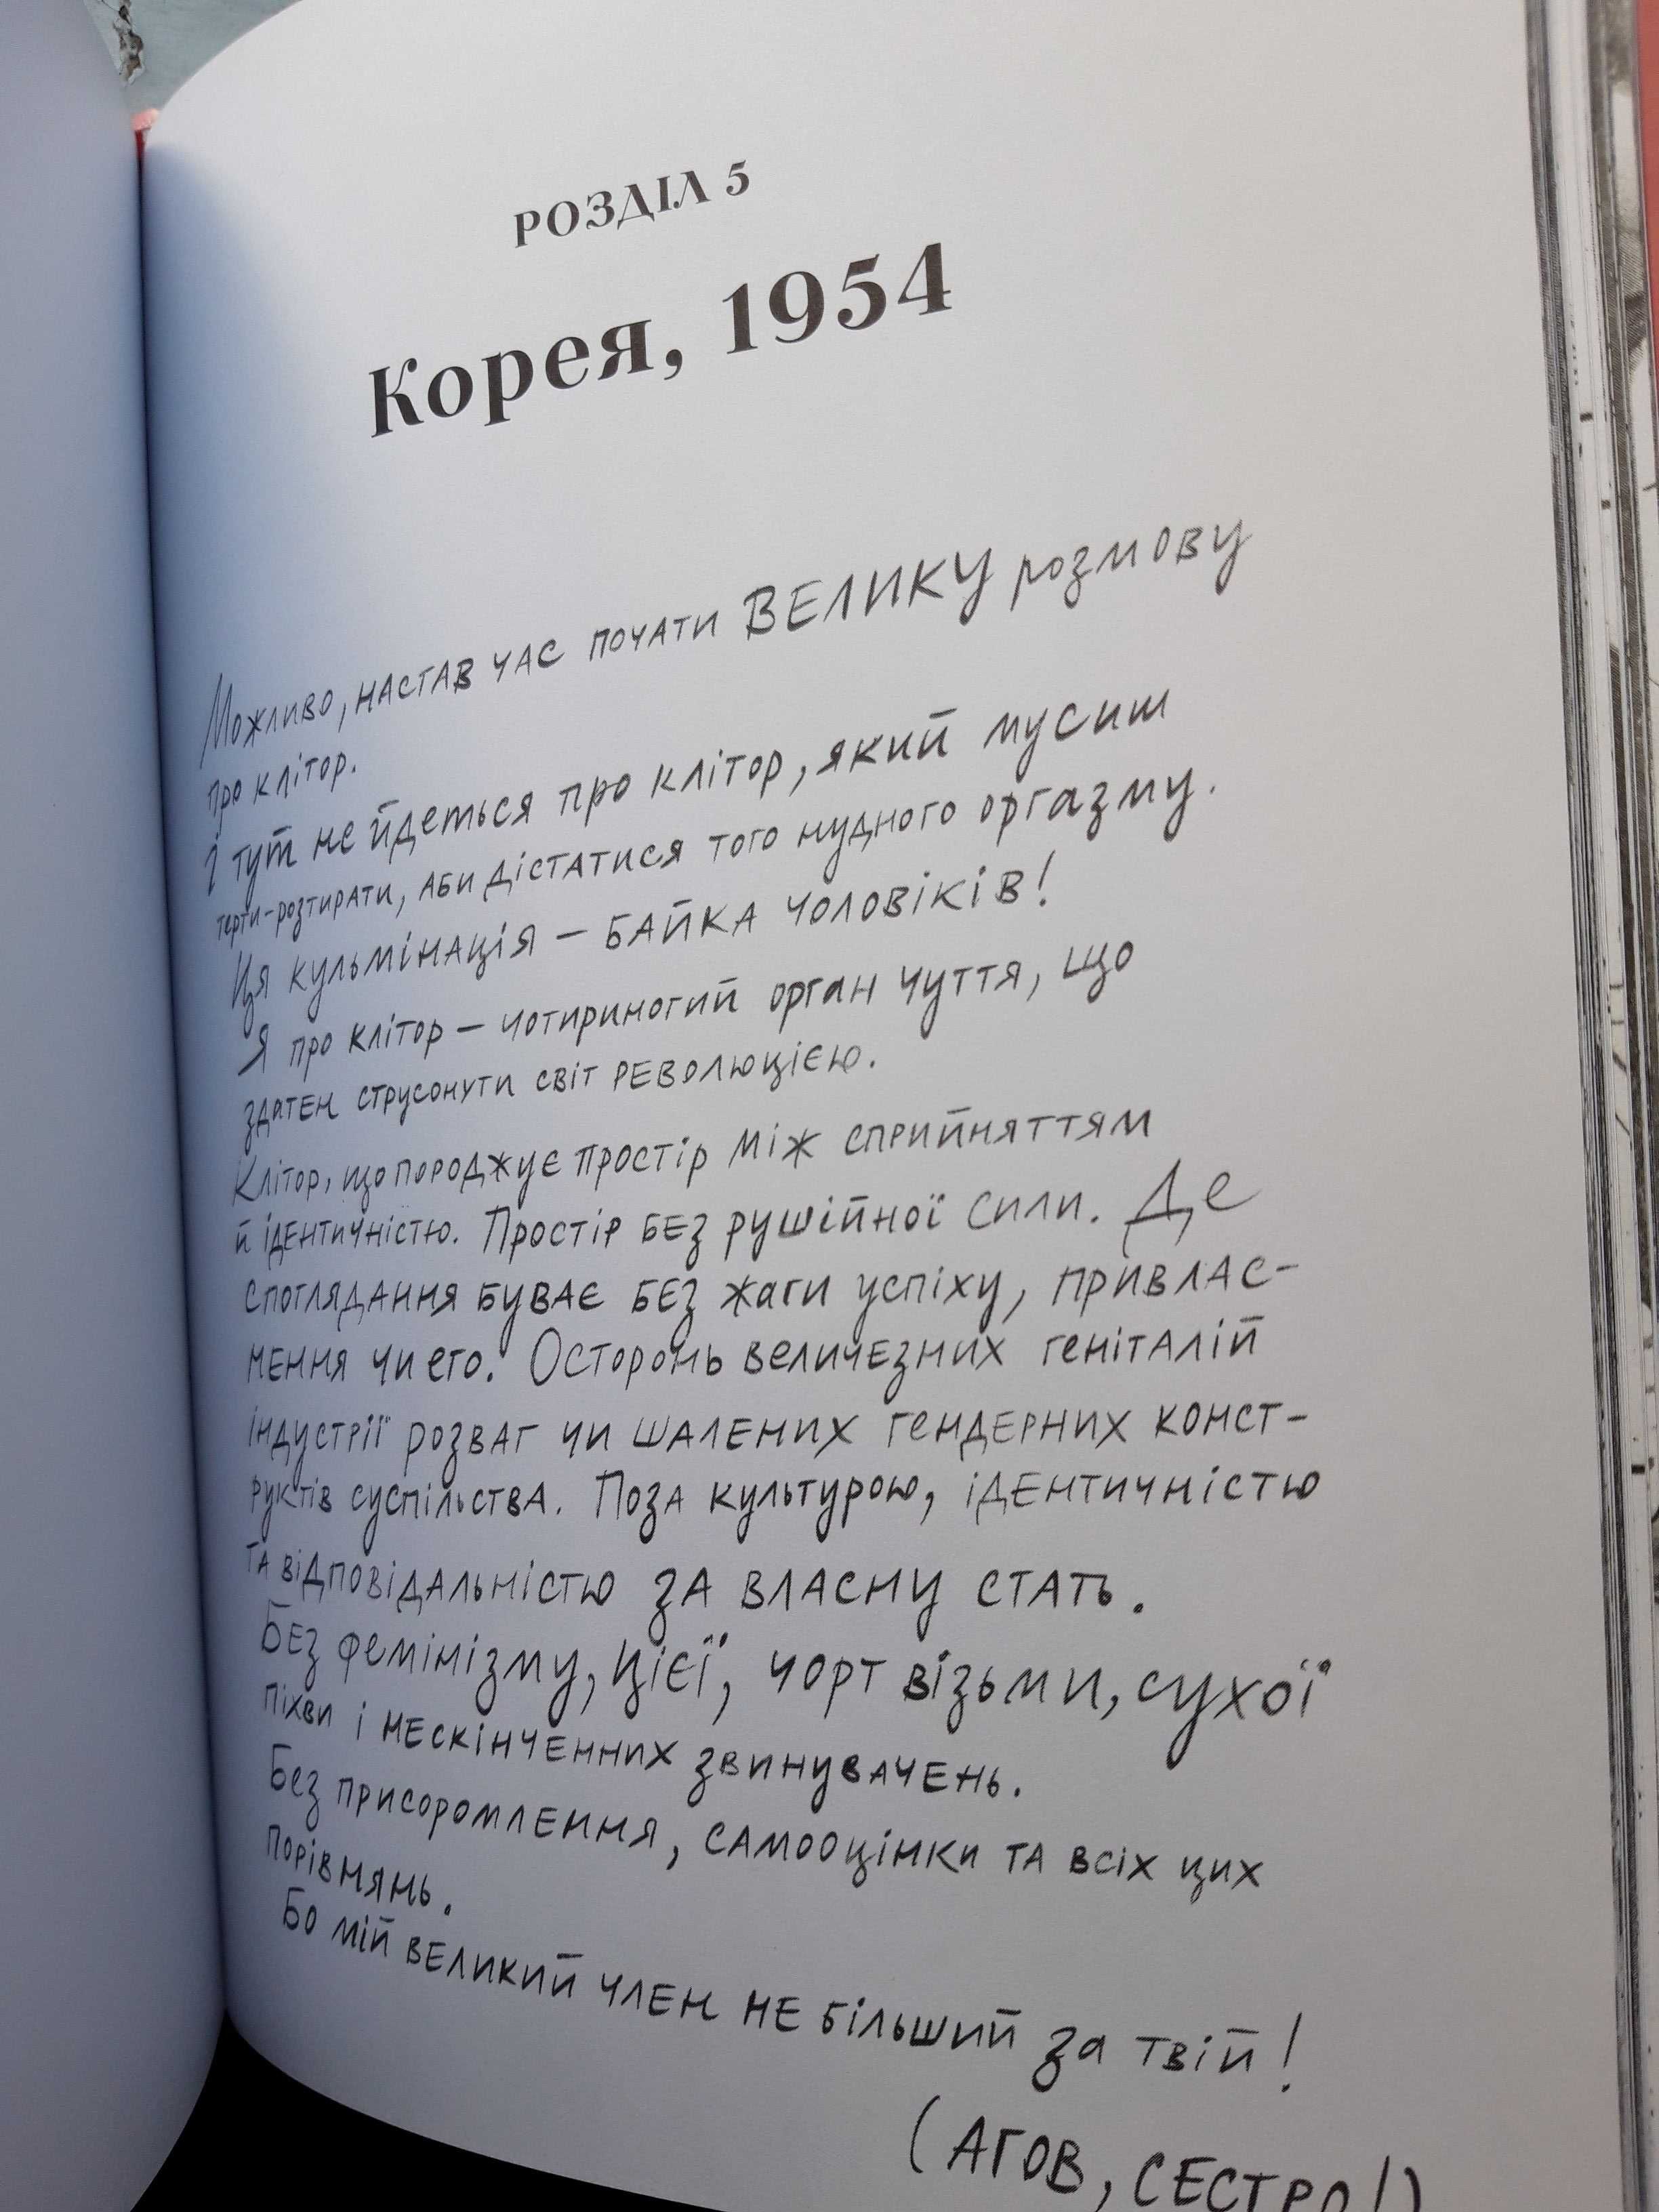 РОЗДІЛ 5
Корея, 1954
Можливо, настав час почати ВЕЛИКУ розмову
про клітор.
І тут не йдеться про клітор, який мусиш
терти-розтирати, аби дістатися того нудного оргазму.
Ця кульмінація – байка чоловіків!
Я про клітор – чотириногий орган чуття, що
здатен струсонути світ революцією.
Клітор, що породжує простір між сприйняттям
й ідентичністю. Простір без рушійної сили. Де
споглядання буває без жаги успіху, привлас-
нення чи его. Осторонь величезних геніталій
індустрії розваг чи шалених гендерних конст-
руктів суспільства. Поза культурою, ідентичністю
та відповідальністю за власну стать.
Без фемінізму, цієї, чорт візьми, сухої
піхви і нескінченних звинувачень.
Без присоромлення, самооцінки та всіх цих
порівнянь.
Бо мій великий член не більший за твій!
(Агов, сестро!)